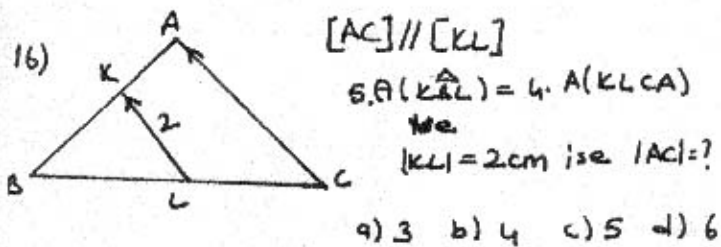 16)
A
K
2
B
L
C
[AC]//[KL]
5.A(KBL) = 4. A(KLCA)
ve
|KL| = 2cm ise |AC|=?
a) 3 b) 4 c) 5 d) 6